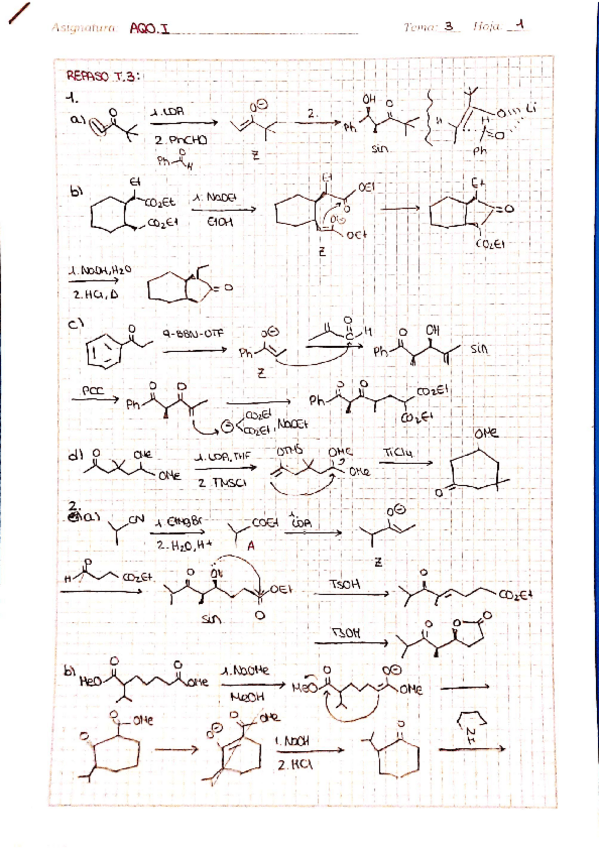 Asignatura AQO.I Tema 3 Hoja 1
REPASO T.3:
1.
a) O 1. LDA O⊖ 2. OH O
2. PhCHO Ph Li
Ph H O Z sin Ph
b) Et CO2Et CO2Et 1. NaOEt EtOH Et OEt O OEt Z Et O CO2Et
1. NaOH, H2O
2. HCl, Δ O
c) O 9-BBN-OTf O⊖ Ph Z O H O OH Ph sin
PCC O O Ph ⊖ CO2Et CO2Et, NaOEt O O Ph CO2Et CO2Et
d) O OMe OMe 1. LDA, THF 2. TMSCl OTMS OMe OMe TiCl4 OMe O
2.
a) CN 1. EtMgBr 2. H2O, H+ COEt A 1. LDA O⊖ Z
O H CO2Et O OH OEt O sin TsOH O CO2Et
TSOH O O O
b) O MeO O OMe 1. NaOMe MeOH O MeO O⊖ OMe
O OMe O O⊖ O OMe 1. NaOH 2. HCl O N H